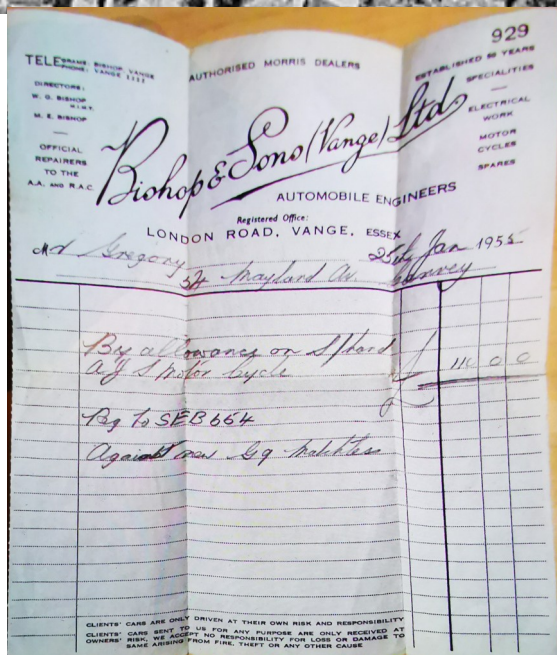 929
TELEGRAMS: BISHOP VANGE
PHONE: VANGE
AUTHORISED MORRIS DEALERS
ESTABLISHED 50 YEARS
DIRECTORS:
W. G. BISHOP
M.I.M.T.
M. E. BISHOP
OFFICIAL
REPAIRERS
TO THE
A.A. AND R.A.C.
SPECIALITIES
ELECTRICAL
WORK
MOTOR
CYCLES
SPARES
Bishop & Sons (Vange) Ltd
AUTOMOBILE ENGINEERS
Registered Office:
LONDON ROAD, VANGE, ESSEX
25th Jan 1955
Mr Gregory
34 Mayland Av. Canvey
By allowance on S/hand
AJS Motor Cycle
Reg No SEB 664
Against new G9 Matchless
CLIENTS' CARS ARE ONLY DRIVEN AT THEIR OWN RISK AND RESPONSIBILITY
CLIENTS' CARS SENT TO US FOR ANY PURPOSE ARE ONLY RECEIVED AT
OWNERS' RISK, WE ACCEPT NO RESPONSIBILITY FOR LOSS OR DAMAGE TO
SAME ARISING FROM FIRE, THEFT OR ANY OTHER CAUSE